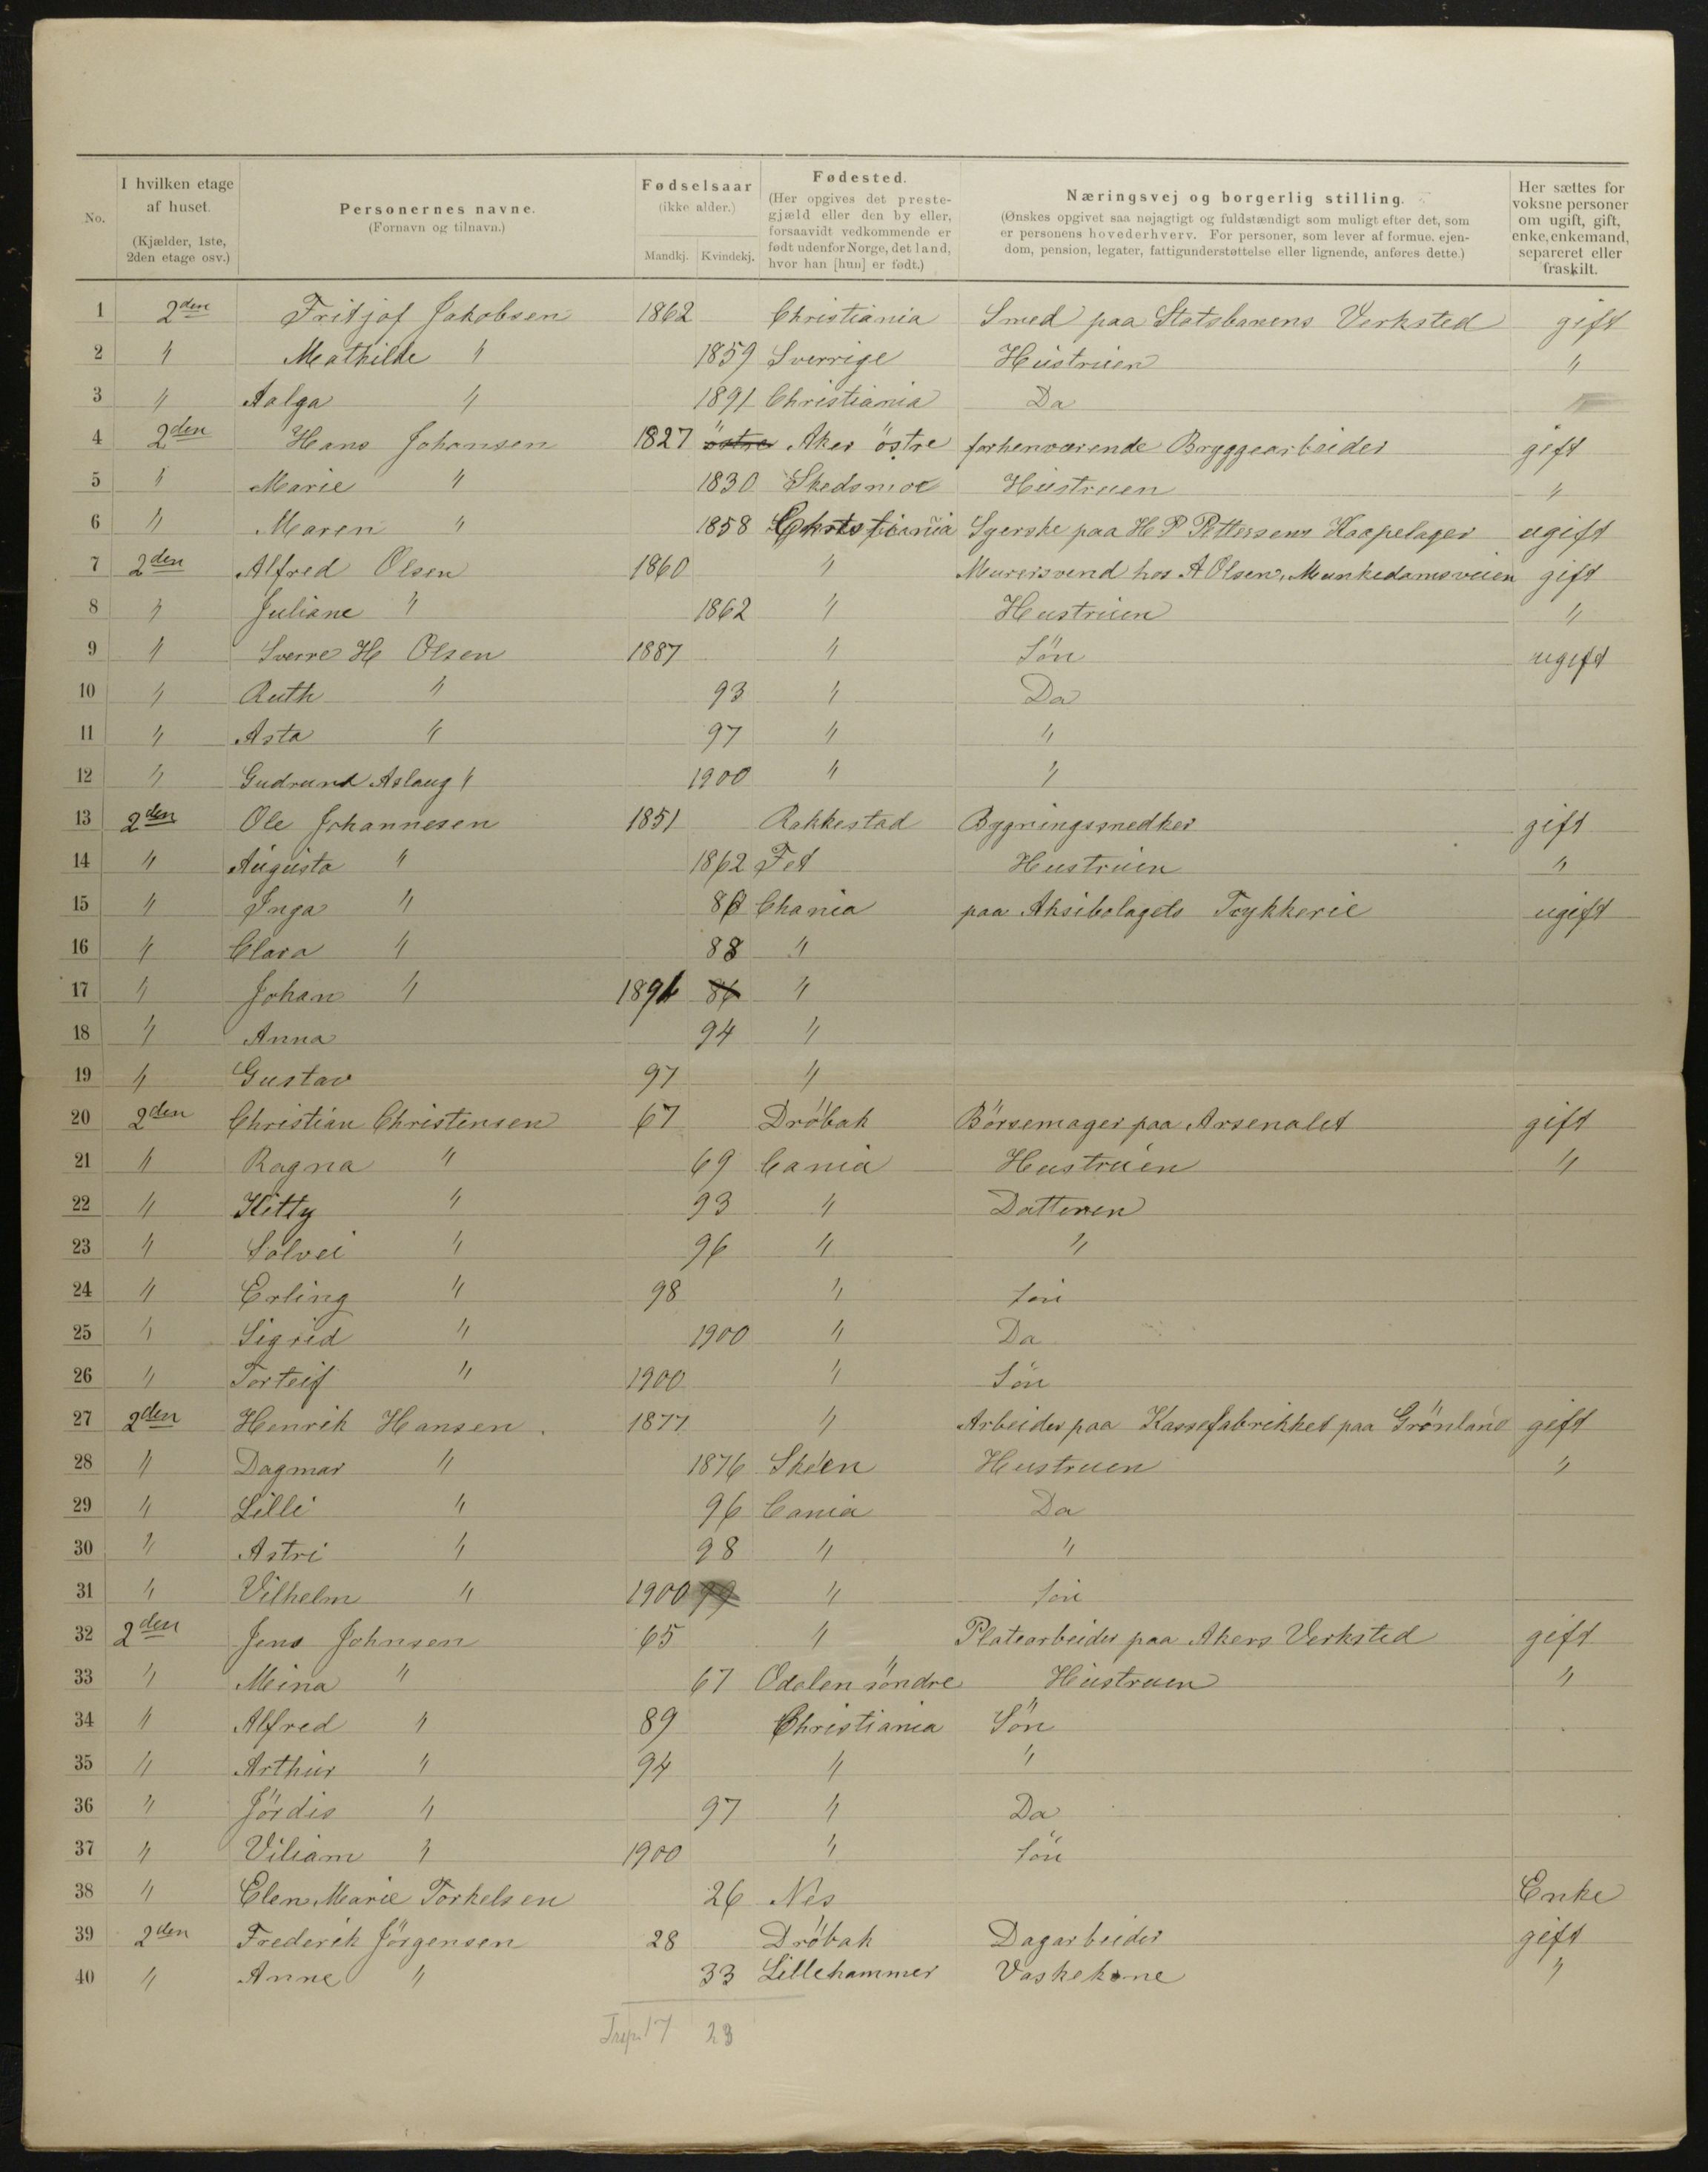 No.
I hvilken etage af huset.
(Kjælder, 1ste, 2den etage osv.)
Personernes navne.
(Fornavn og tilnavn.)
Fødselsaar
(ikke alder.)
Mandkj. Kvindekj.
Fødested.
(Her opgives det preste-
gjæld eller den by eller,
forsaavidt vedkommende er
født udenfor Norge, det land,
hvor han [hun] er født.)
Næringsvej og borgerlig stilling.
(Ønskes opgivet saa nøjagtigt og fuldstændigt som muligt efter det, som
er personens hovederhverv. For personer, som lever af formue, ejen-
dom, pension, legater, fattigunderstøttelse eller lignende, anføres dette.)
Her sættes for
voksne personer
om ugift, gift,
enke, enkemand,
separeret eller
fraskilt.
1 2den Fritjof Jakobsen 1862 Christiania Smed paa Statsbanens Verksted gift
2 " Mathilde " 1859 Sverrige Hustruen "
3 " Aalga " 1891 Christiania Da
4 2den Hans Johansen 1827 östre Aker östre forhenværende Bryggearbeider gift
5 " Marie " 1830 Skedsmoe Hustruen "
6 " Maren " 1858 Christiania Syerske paa H P Pettersens Kaapelager ugift
7 2den Alfred Olsen 1860 " Murersvend hos A Olsen, Munkedamsveien gift
8 " Juliane " 1862 " Hustruen "
9 " Sverre H Olsen 1887 " Sön ugift
10 " Ruth " 93 " Da
11 " Asta " 97 " "
12 " Gudrund Aslaug " 1900 " "
13 2den Ole Johannesen 1851 Rakkestad Bygningssnedker gift
14 " Augusta " 1862 Fet Hustruen "
15 " " Inga " Chania paa Aksibolagets Trykkerie ugift
16 " Clara " 88 "
17 " Johan " 189 86 "
18 " Anna 94 "
19 " Gustav 97 "
20 2den Christian Christensen 67 Dröbak Börsemager paa Arsenalet gift
21 " Ragna " 69 Cania Hustruen "
22 " Kitty " 93 " Datteren
23 " Solvei " 96 " "
24 " Erling " 98 " Sön
25 " Sigrid " 1900 " Da
26 " Torleif " 1900 " Sön
27 2den Henrik Hansen. 1877 " Arbeider paa Kassefabrikket paa Grönland gift
28 " Dagmar " 1876 Skeen Hustruen "
29 " Lilli " 96 Cania Da
30 " Astri " 98 " "
31 " Vilhelm " 1900 99 " Sön
32 2den Jens Johnsen 65 " Platearbeider paa Akers Verksted gift
33 " Meina " 67 Odalen söndre Hustruen "
34 " Alfred " 89 Christiania Sön
35 " Arthur " 94 " "
36 " Jördis " 97 " Da
37 " Viliam " 1900 " Sön
38 " Elen Marie Torkelsen 26 Nes Enke
39 2den Frederik Jörgensen 28 Dröbak Dagarbeider gift
40 " Anne " 33 Lillehammer Vaskekone "
Trsp. 17 23